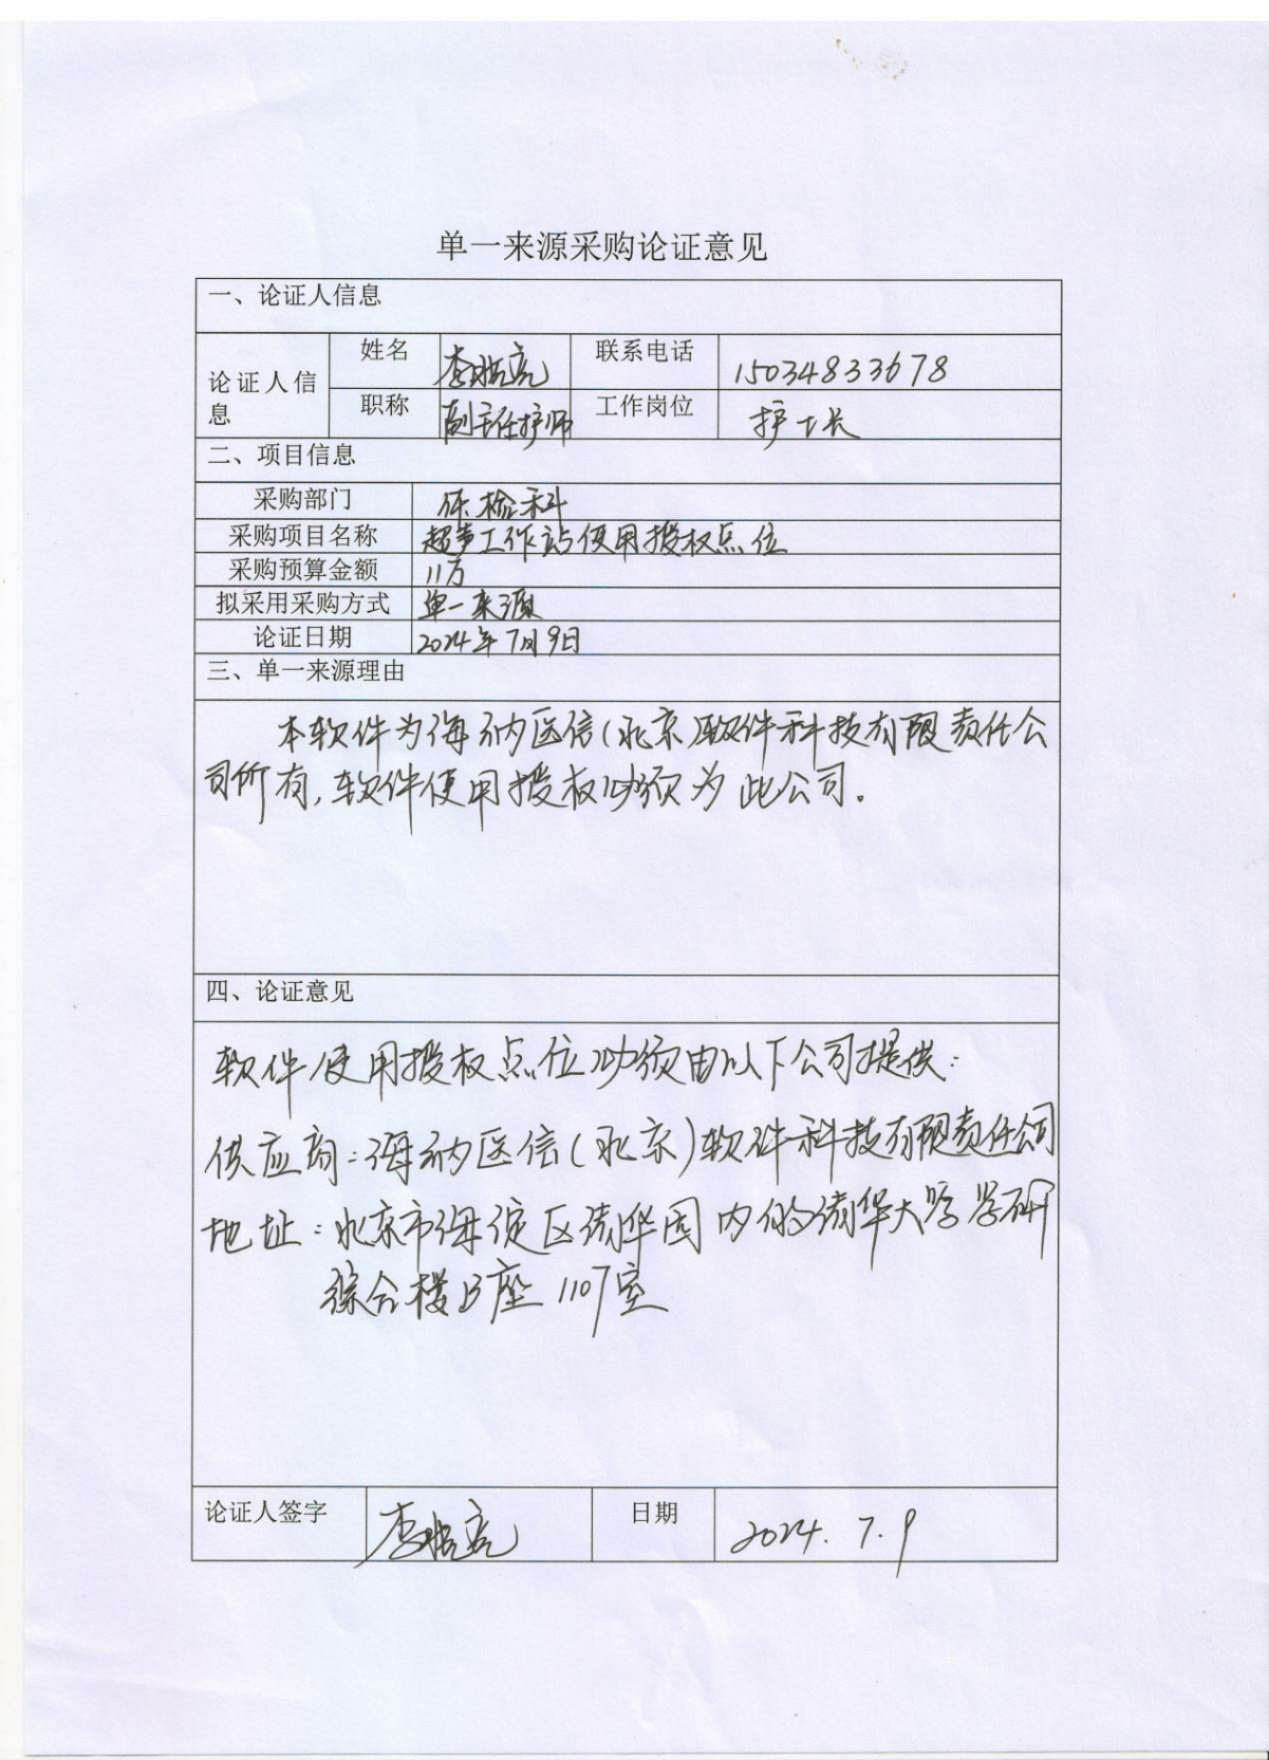 单一来源采购论证意见
一、论证人信息
论证人信息
姓名 李 亮 联系电话 15034833678
职称 副主任护师 工作岗位 护士长
二、项目信息
采购部门 体检科
采购项目名称 超声工作站使用授权点位
采购预算金额 11万
拟采用采购方式 单一来源
论证日期 2024年7月9日
三、单一来源理由
本软件为海纳医信(北京)软件科技有限责任公
司所有,软件使用授权必须为此公司。
四、论证意见
软件使用授权点位必须由以下公司提供:
供应商:海纳医信(北京)软件科技有限责任公司
地址:北京市海淀区清华园内的清华大学学研
综合楼B座1107室
论证人签字 李 亮 日期 2024.7.9